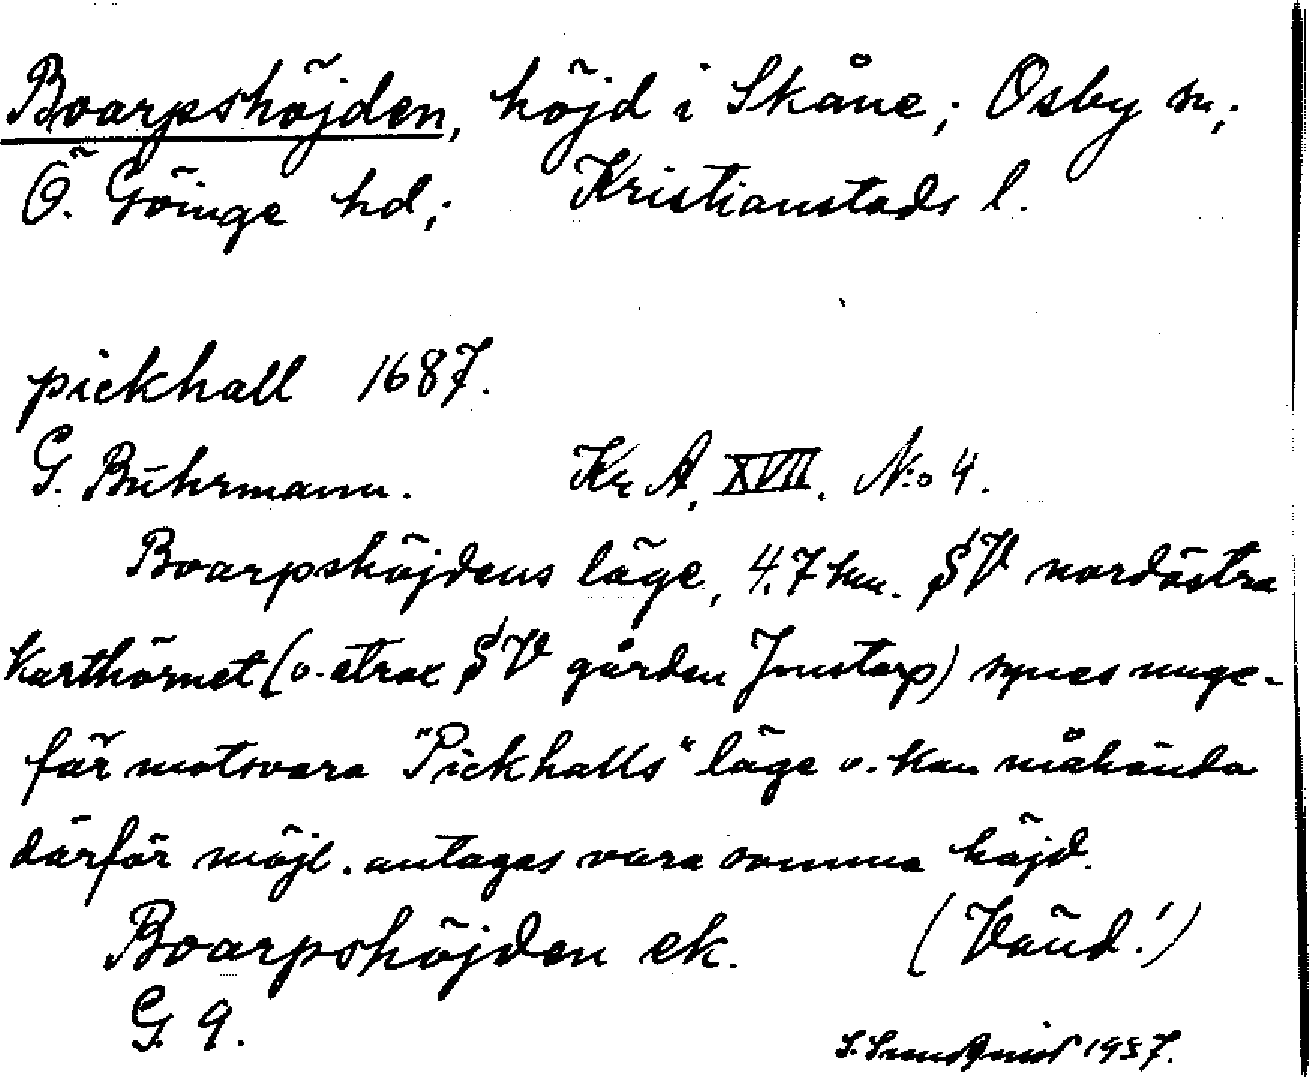 Boarpshöjden, höjd i Skåne; Osby sn;
Ö. Göinge hd; Kristianstads l.
pickhall 1687.
G. Buhrmann. Kr. A. XVII. N:o 4.
Boarpshöjdens läge, 4.7 km. SV nordöstra
karthörnet (o. strax SV gården Jonstorp) synes unge-
fär motsvara "Pickhalls" läge o. kan måhända
därför möjl. antagas vara samma höjd.
Boarpshöjden ek. (Vänd!)
G 9.
1937.